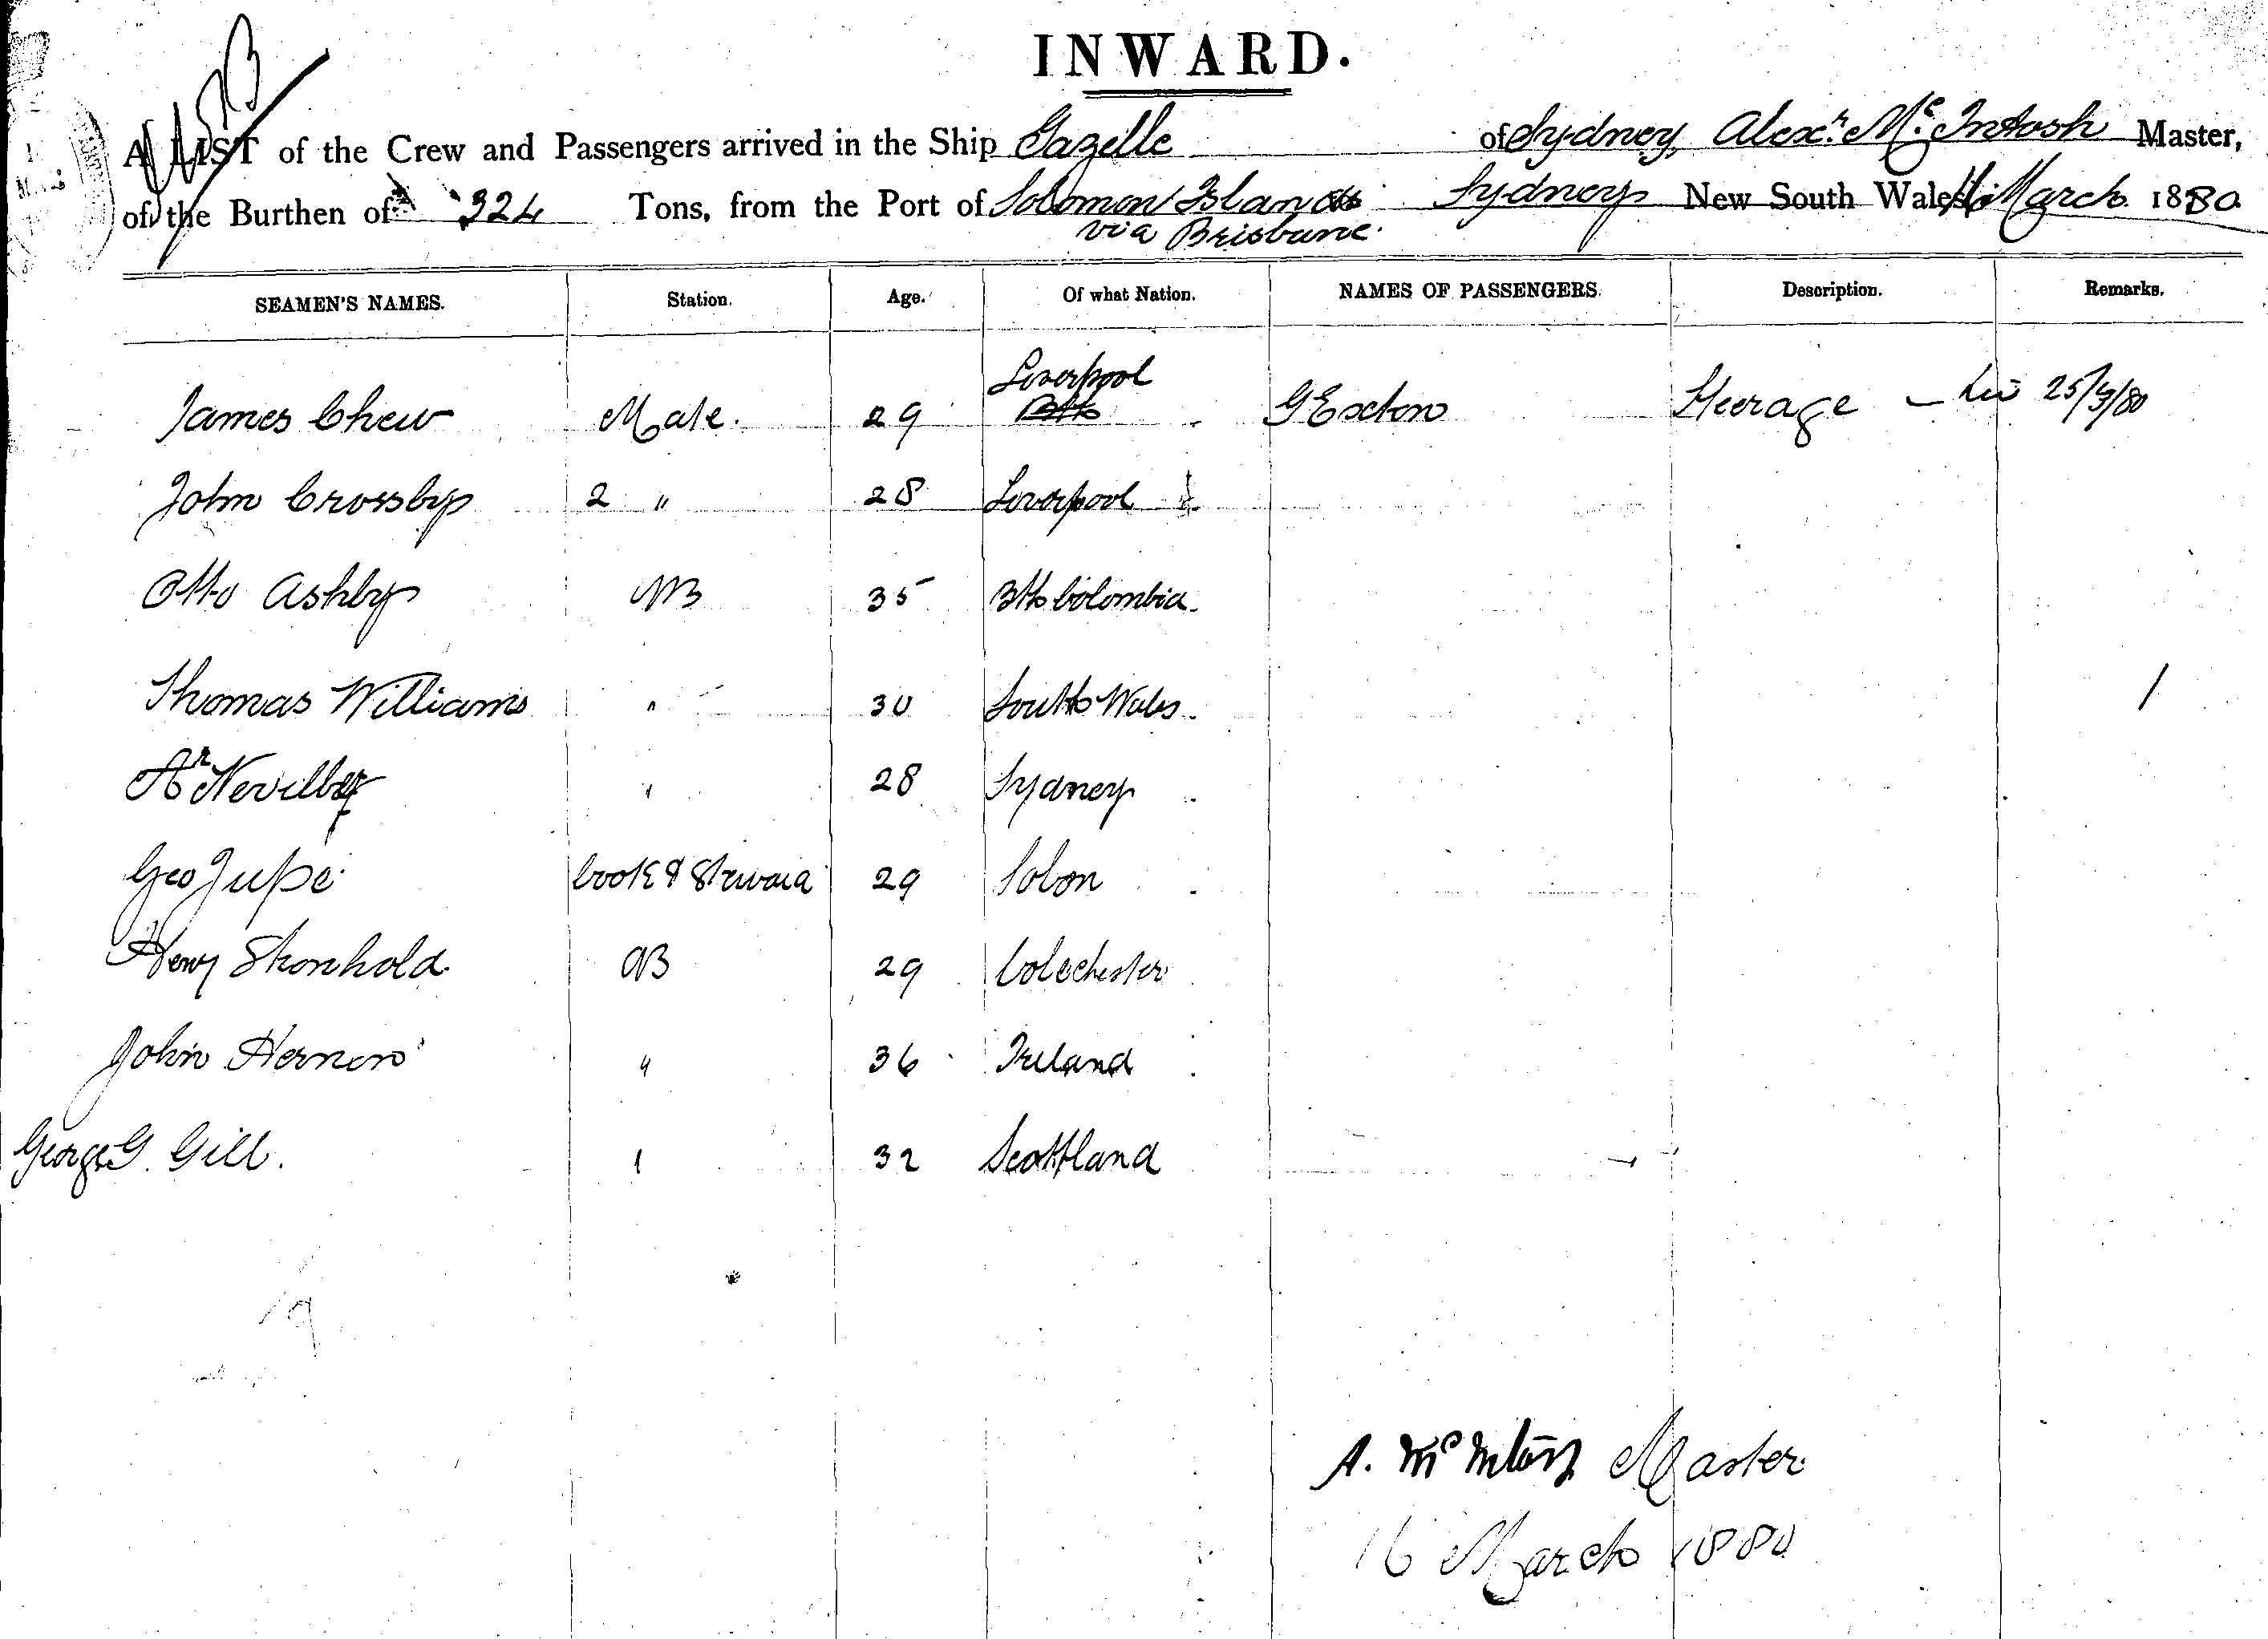 INWARD.
A LIST of the Crew and Passengers arrived in the Ship Gazelle of Sydney, Alexr. Mc.Intosh Master,
of the Burthen of 324 Tons, from the Port of Solomon Islands Sydney New South Wales, 16 March 1880
via Brisbane.
SEAMEN'S NAMES. Station. Age. Of what Nation. NAMES OF PASSENGERS. Description. Remarks.
Liverpool
James Chew Mate. 29 G Exton Steerage 25/3/80
John Crossby 2 " 28 Liverpool
Otto Ashby AB 35 Bth Colombia
Thomas Williams " 30 South Wales
Ar Neville " 28 Sydney
Geo Jupe Cook & Steward 29
Heny AB 29 Colechester
John Hernon " 36 Ireland
George G. Gill. " 32 Scottland
A. Mc Intosh Master
16 March 1880